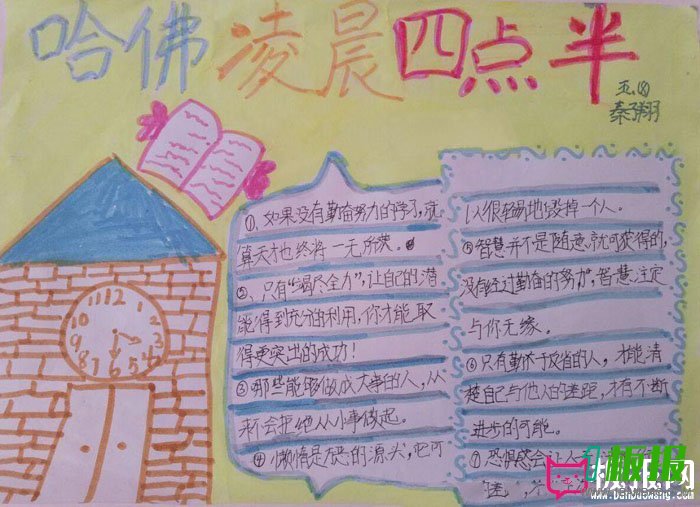 哈佛凌晨四点半
五、(8)
秦翔
①、如果没有勤奋努力的学习,就
算天才也终将一无所获。
②、只有“竭尽全力”,让自己的潜
能得到充分的利用,你才能取
得更突出的成功!
③那些能够做成大事的人,从
来不会拒绝从小事做起。
④懒惰是万恶的源头,它可
以很轻易地毁掉一个人。
⑤智慧并不是随意就可获得的,
没有经过勤奋的努力,智慧注定
与你无缘。
⑥只有勤于反省的人,才能清
楚自己与他人的差距,才有不断
进步的可能。
⑦恐惧会让人
12 1 2 3 4 5 6 7 8 9 10 11
板报网
www.banbaowang.com